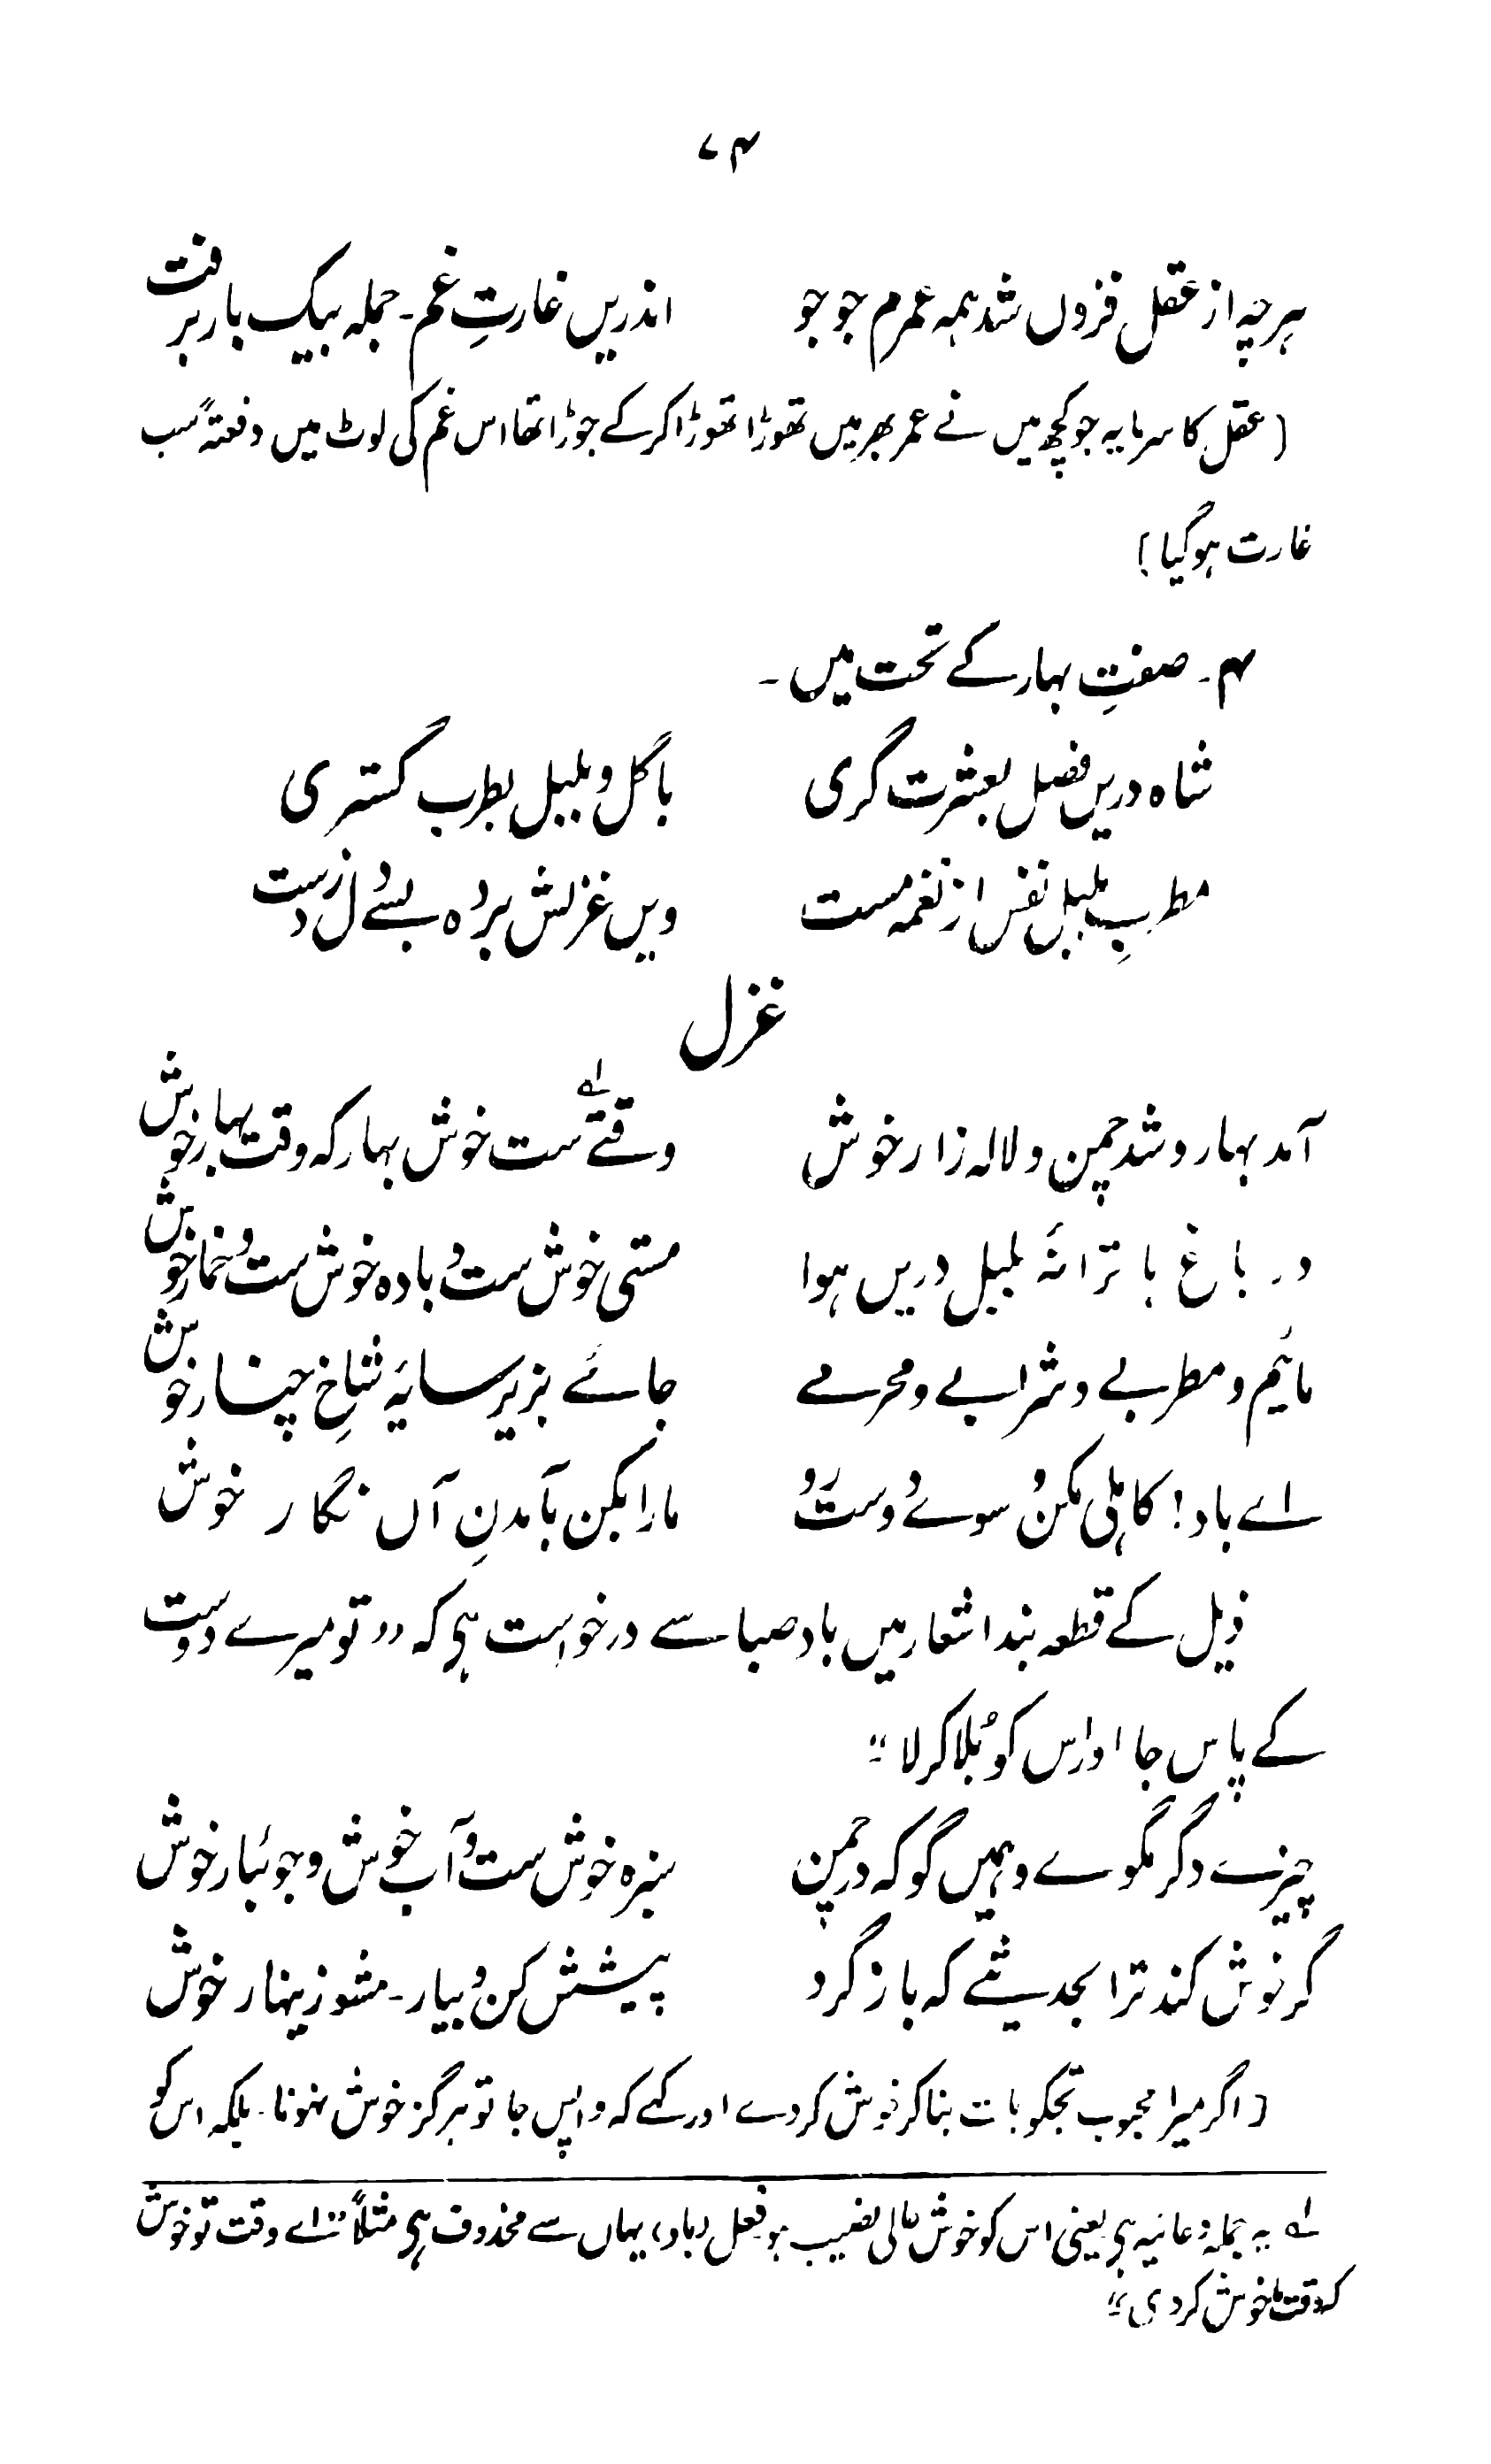 ۷۴
ہرچہ از عقل فزوں شد ہمہ عمرم جو جو اندریں غارتِ غم ۔ جملہ بیک بار برفت
(عقل کا سرمایہ جو کچھ میں نے عمر بھر میں تھوڑا تھوڑا کرکے جوڑا تھا اس غم کی لوٹ میں دفعتہً سب
غارت ہوگیا)
۴ ۔ صفتِ بہار کے تحت میں ۔
شاہ دریں فصل بعشرت گری باگل و بلبل بطرب گستری
مطربِ بلبل نفس از نغمہ مست ویں غزلش بردہ بسے دل زدست
غزل
آمد بہار و شد چمن و لالہ زار خوش وقتے ست خوش بہار کہ وقت بہار خوش
در باغ با ترانۂ بلبل دریں ہوا مستی خوش ست و بادہ خوش ست و خمار خوش
مائیم و مطربے و شرابے و محرمے جائے بزیر سایۂ شاخِ چنار خوش
اے باد! کاہلی مکن و سوئے دوست رَو مارا بکن بآمدنِ آں نگار خوش
ذیل کے قطعہ بند اشعار میں باد صبا سے درخواست ہی کہ "تو میرے دوست
کے پاس جا اور اس کو بُلا کر لا"
چیزے دگر مگوے و ہمیں گو کہ در چمن سبزہ خوش ست و آب خوش و جوئبار خوش
گر خوش کند ترا بحدیثے کہ باز گرد پیشش کن و بیار ۔ مشو زینہار خوش
(اگر میرا محبوب تجکو بات بنا کر خوش کردے اور کہے کہ واپس جا تو ہرگز خوش نہونا ۔ بلکہ اس کو
لہ یہ جملہ دعائیہ ہی یعنی اس کو خوش حالی نصیب ہو فعل (باد) یہاں سے محذوف ہی مثلاً "اے وقت تو خوش
کہ وقت ما خوش کردی"